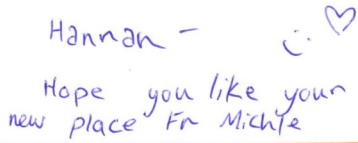 Hannah -
Hope you like your
new place Fr Michle